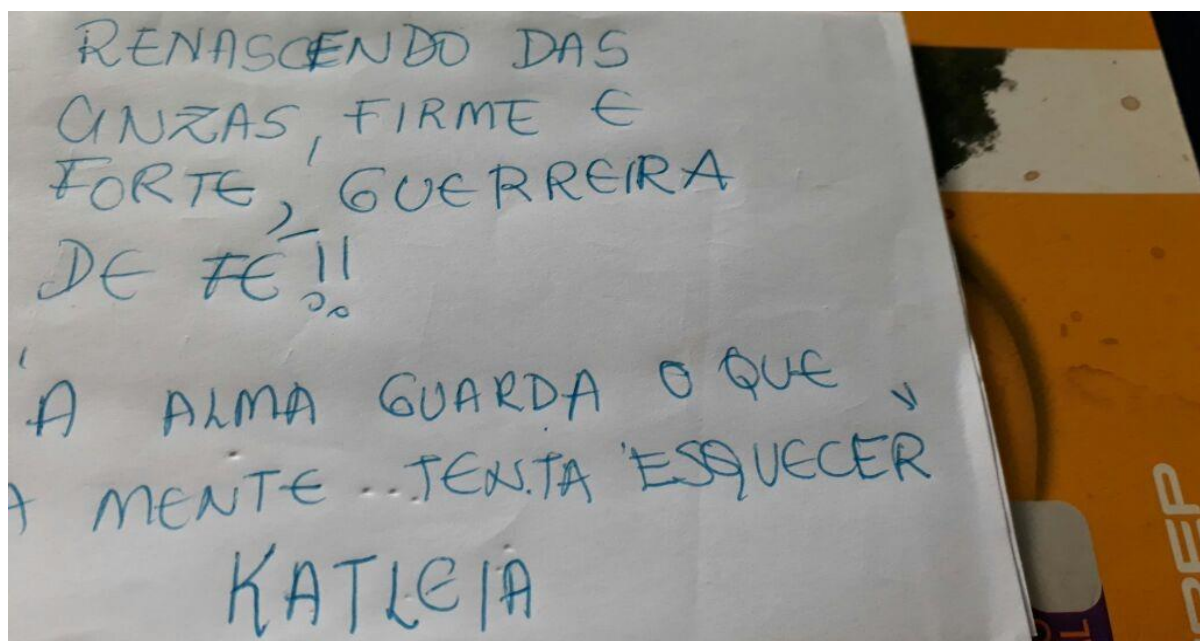 RENASCENDO DAS
CINZAS, FIRME E
FORTE, GUERREIRA
DE FÉ!!
"A ALMA GUARDA O QUE
A MENTE... TENTA ESQUECER"
KATLEIA